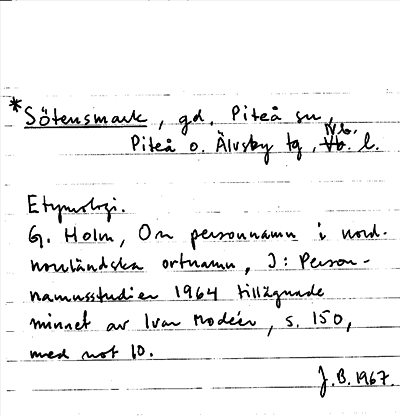 *Sötensmark, gd. Piteå sn,
Piteå o. Älvsby tg, Nb. l.
Etymologi.
G. Holm, Om personnamn i nord-
norrländska ortnamn, I: Person-
namnsstudier 1964 tillägnade
minnet av Ivar Modéer, s. 150,
med not 10.
J.B. 1967.